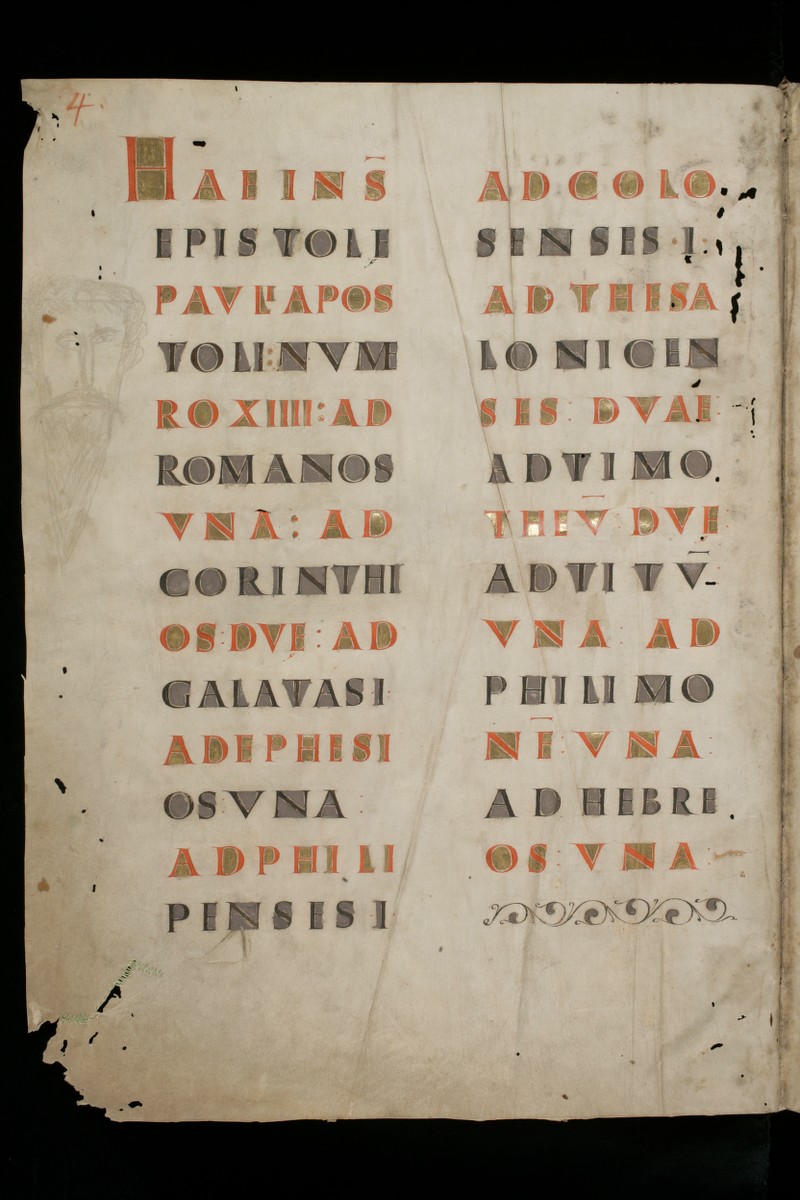 4.
HAEINS̄
EPISTOLE
PAVLI APOS
TOLI: NVME
RO XIIII: AD
ROMANOS
VNA: AD
CORINTHI
OS DVE: AD
GALATAS I
AD EPHESI
OS VNA
AD PHILI
PENSES I
AD COLO
SENSES I.
AD THESA
LONICEN
SES: DVAE
AD TIMO.
THEV̄ DVE
AD TITV̄
VNA AD
PHILIMO
NĒ: VNA
AD HEBRE
OS: VNA